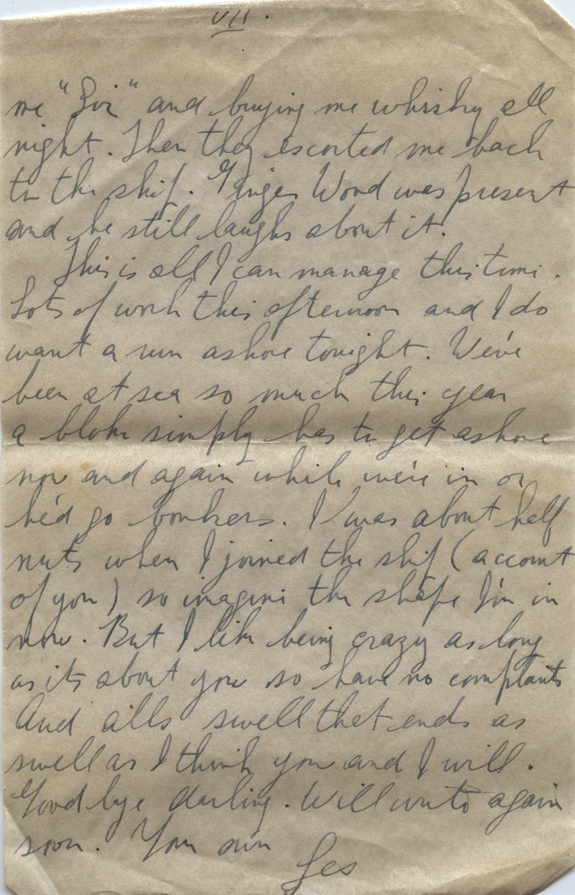 VII.
me "Sir" and buying me whisky all
night. Then they escorted me back
to the ship. Ginger Wood was present
and he still laughs about it.
This is all I can manage this time.
Lots of work this afternoon and I do
want a run ashore tonight. We've
been at sea so much this year
a bloke simply has to get ashore
now and again while we're in or
he'd go bonkers. I was about half
nuts when I joined the ship (account
of you) so imagine the shape I'm in
now. But I like being crazy as long
as its about you so have no complaints
And alls swell that ends as
swell as I think you and I will.
Goodbye darling. Will write again
soon. Your own
Les